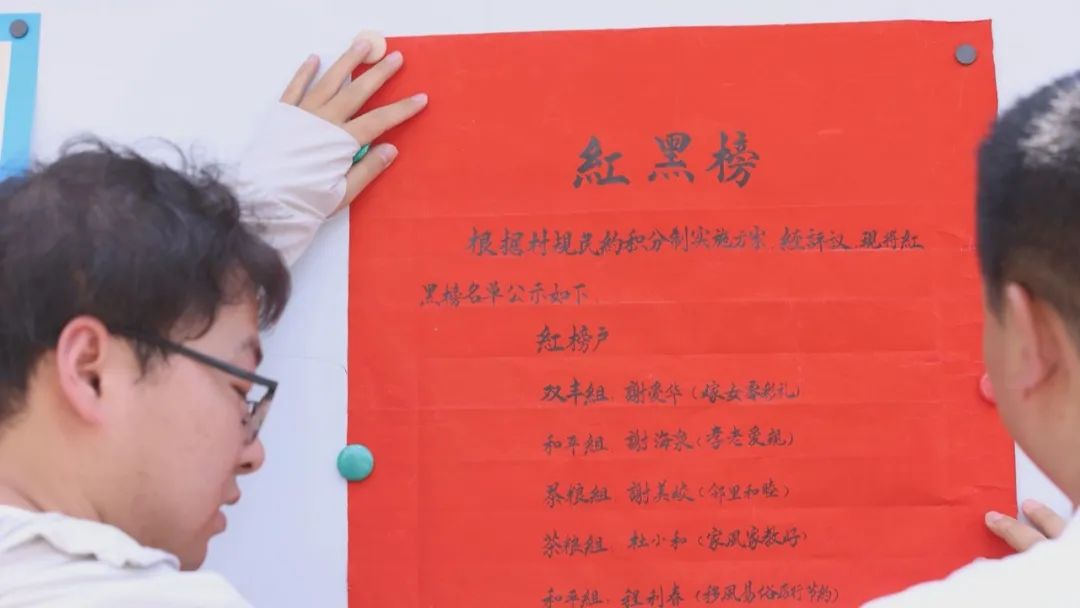 紅黑榜
根据村规民約积分制实施方案，經評议，现将紅
黑榜名单公示如下
紅榜户
双丰組：謝愛华（嫁女零彩礼）
和平組：謝海泉（孝老爱親）
茶粮組：謝美姣（邻里和睦）
茶粮組：杜小和（家風家教好）
和平組：程利春（移風易俗厉行节約）